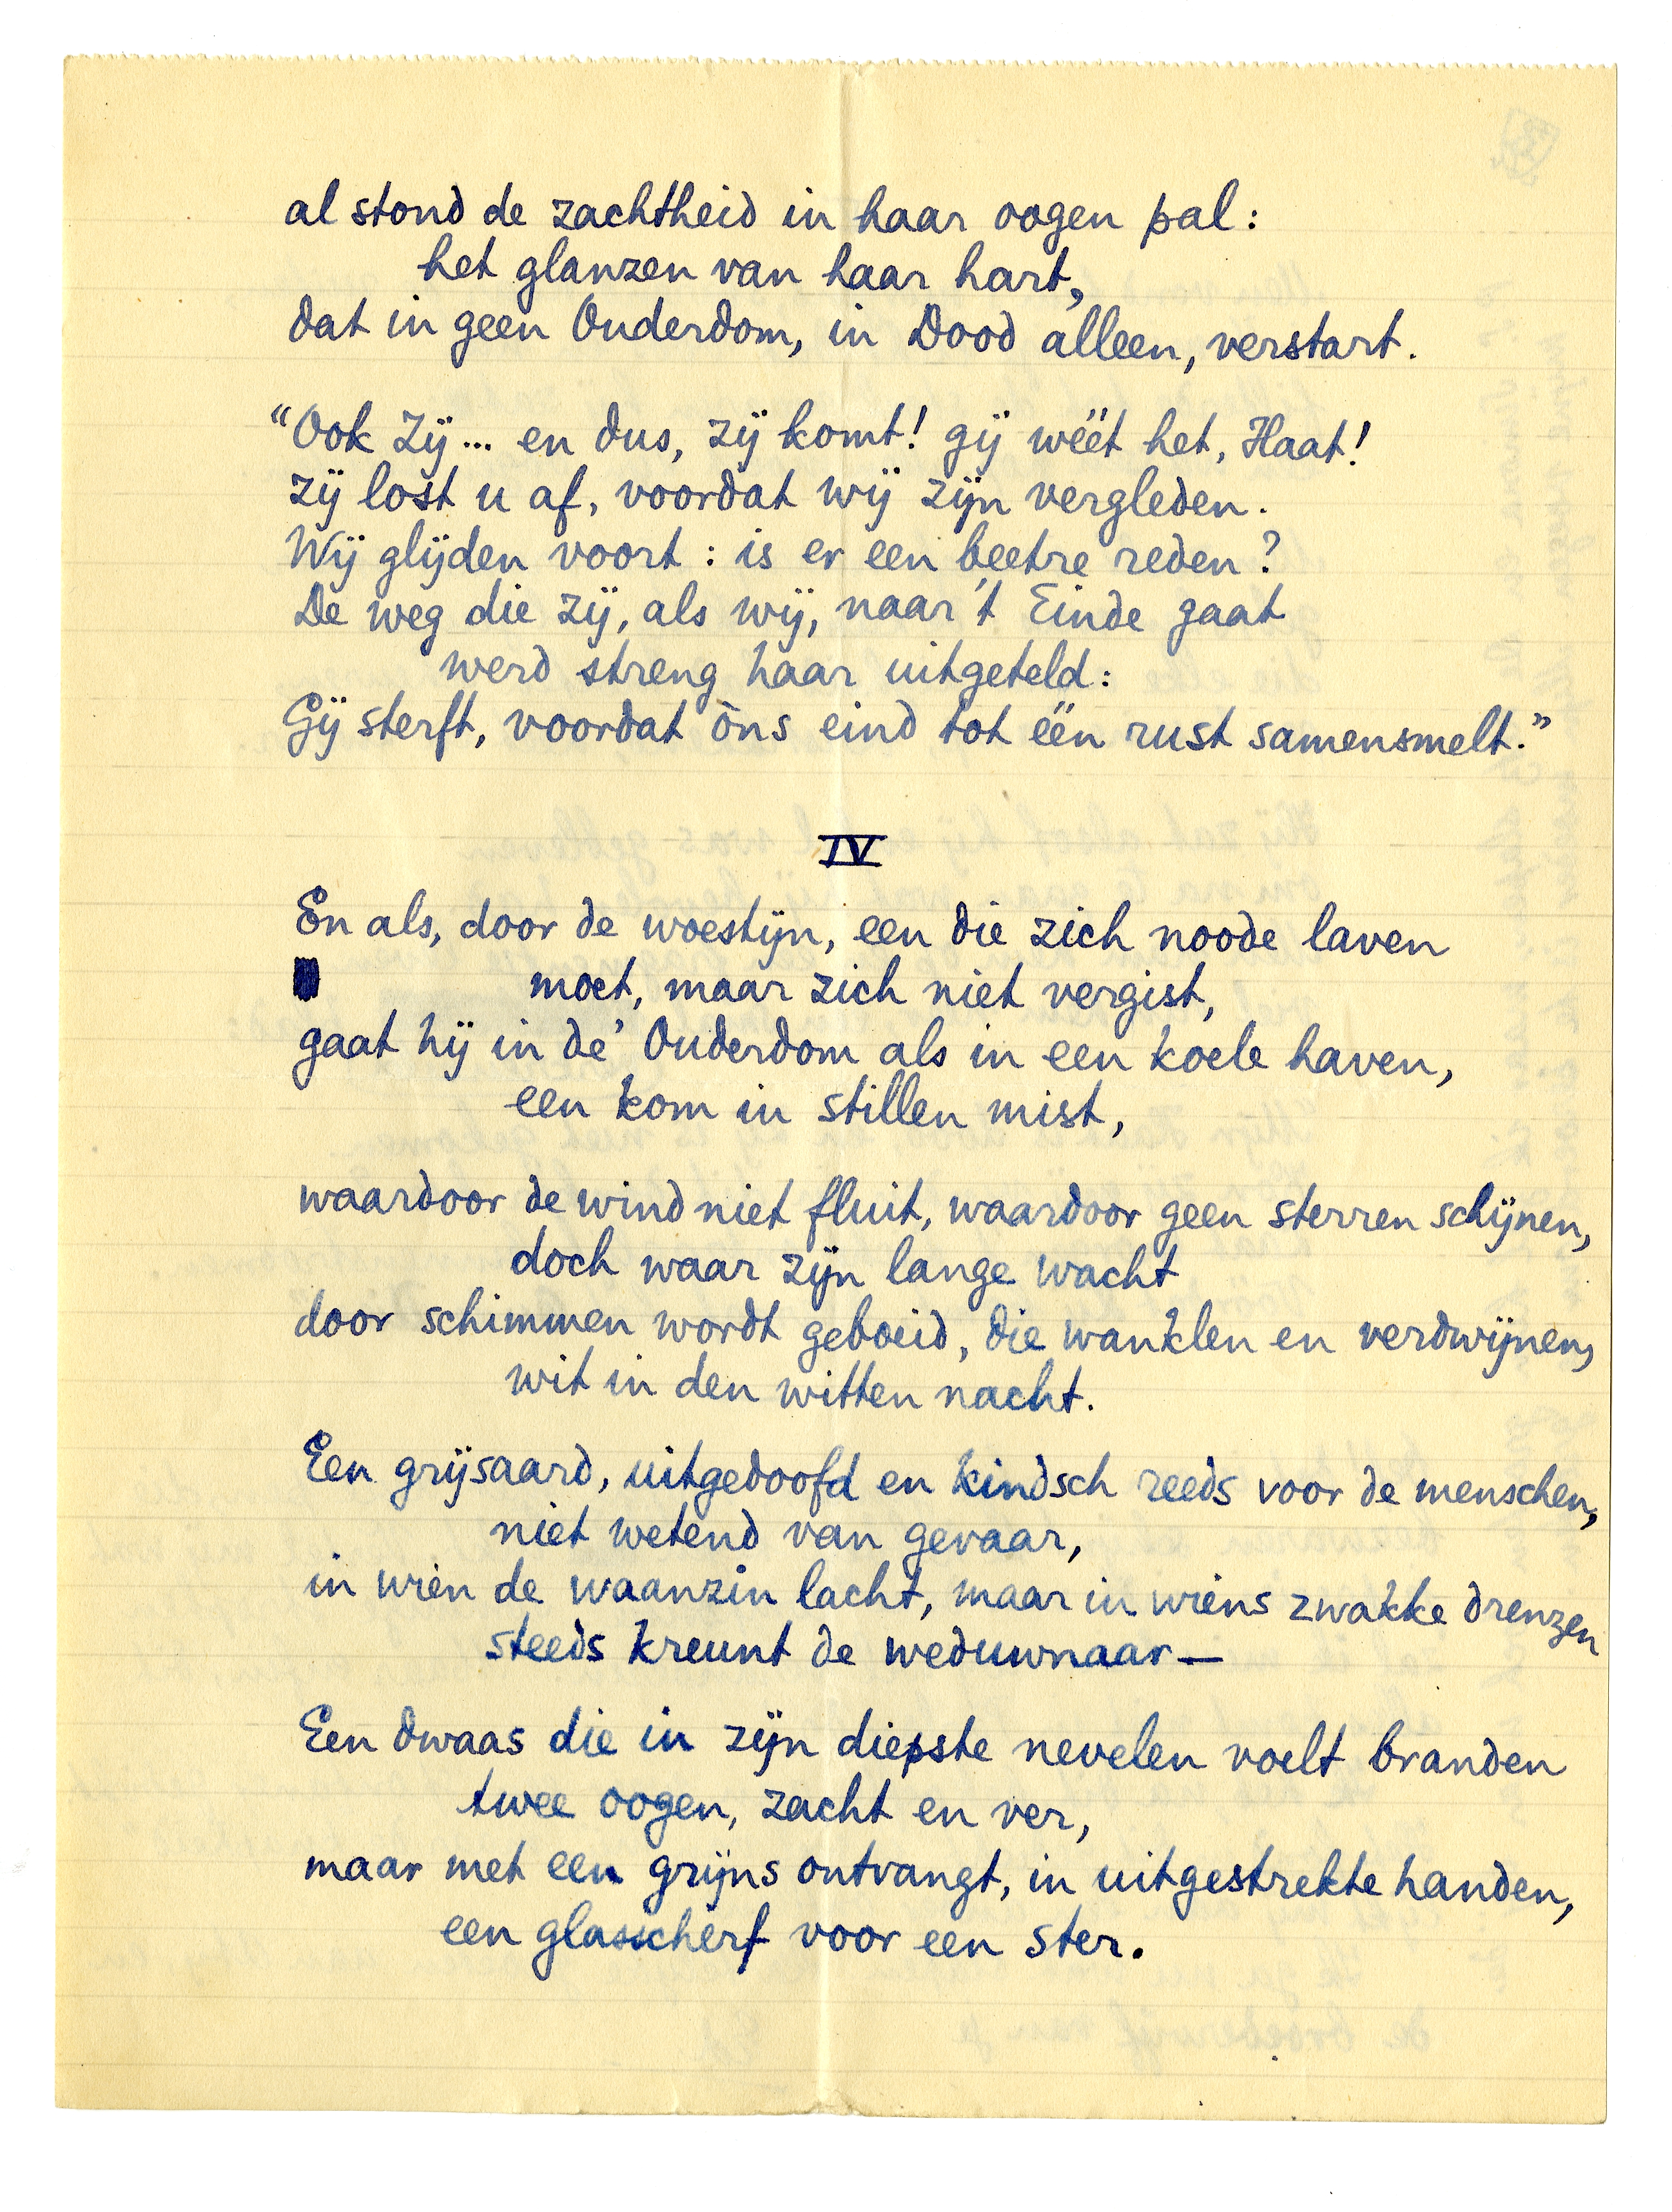 al stond de zachtheid in haar oogen pal:
het glanzen van haar hart,
dat in geen Ouderdom, in Dood alleen, verstart.
“Ook Zij... en dus, zij komt! gij wéét het, Haat!
zij lost u af, voordat wij zijn vergleden.
Wij glijden voort: is er een beetre reden?
De weg die zij, als wij, naar 't Einde gaat
werd streng haar uitgeteld:
Gij sterft, voordat òns eind tot één rust samensmelt.”
IV
En als, door de woestijn, een die zich noode laven
moet, maar zich niet vergist,
gaat hij in de' Ouderdom als in een koele haven,
een kom in stillen mist,
waardoor de wind niet fluit, waardoor geen sterren schijnen,
doch waar zijn lange wacht
door schimmen wordt geboeid, die wanklen en verdwijnen,
wit in den witten nacht.
Een grijsaard, uitgedoofd en kindsch reeds voor de menschen,
niet wetend van gevaar,
in wien de waanzin lacht, maar in wiens zwakke drenzen
steeds kreunt de weduwnaar—
Een dwaas die in zijn diepste nevelen voelt branden
twee oogen, zacht en ver,
maar met een grijns ontvangt, in uitgestrekte handen,
een glasscherf voor een ster.